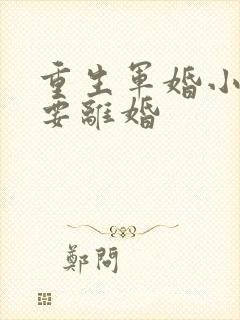 重生軍婚小
要離婚
鄭問